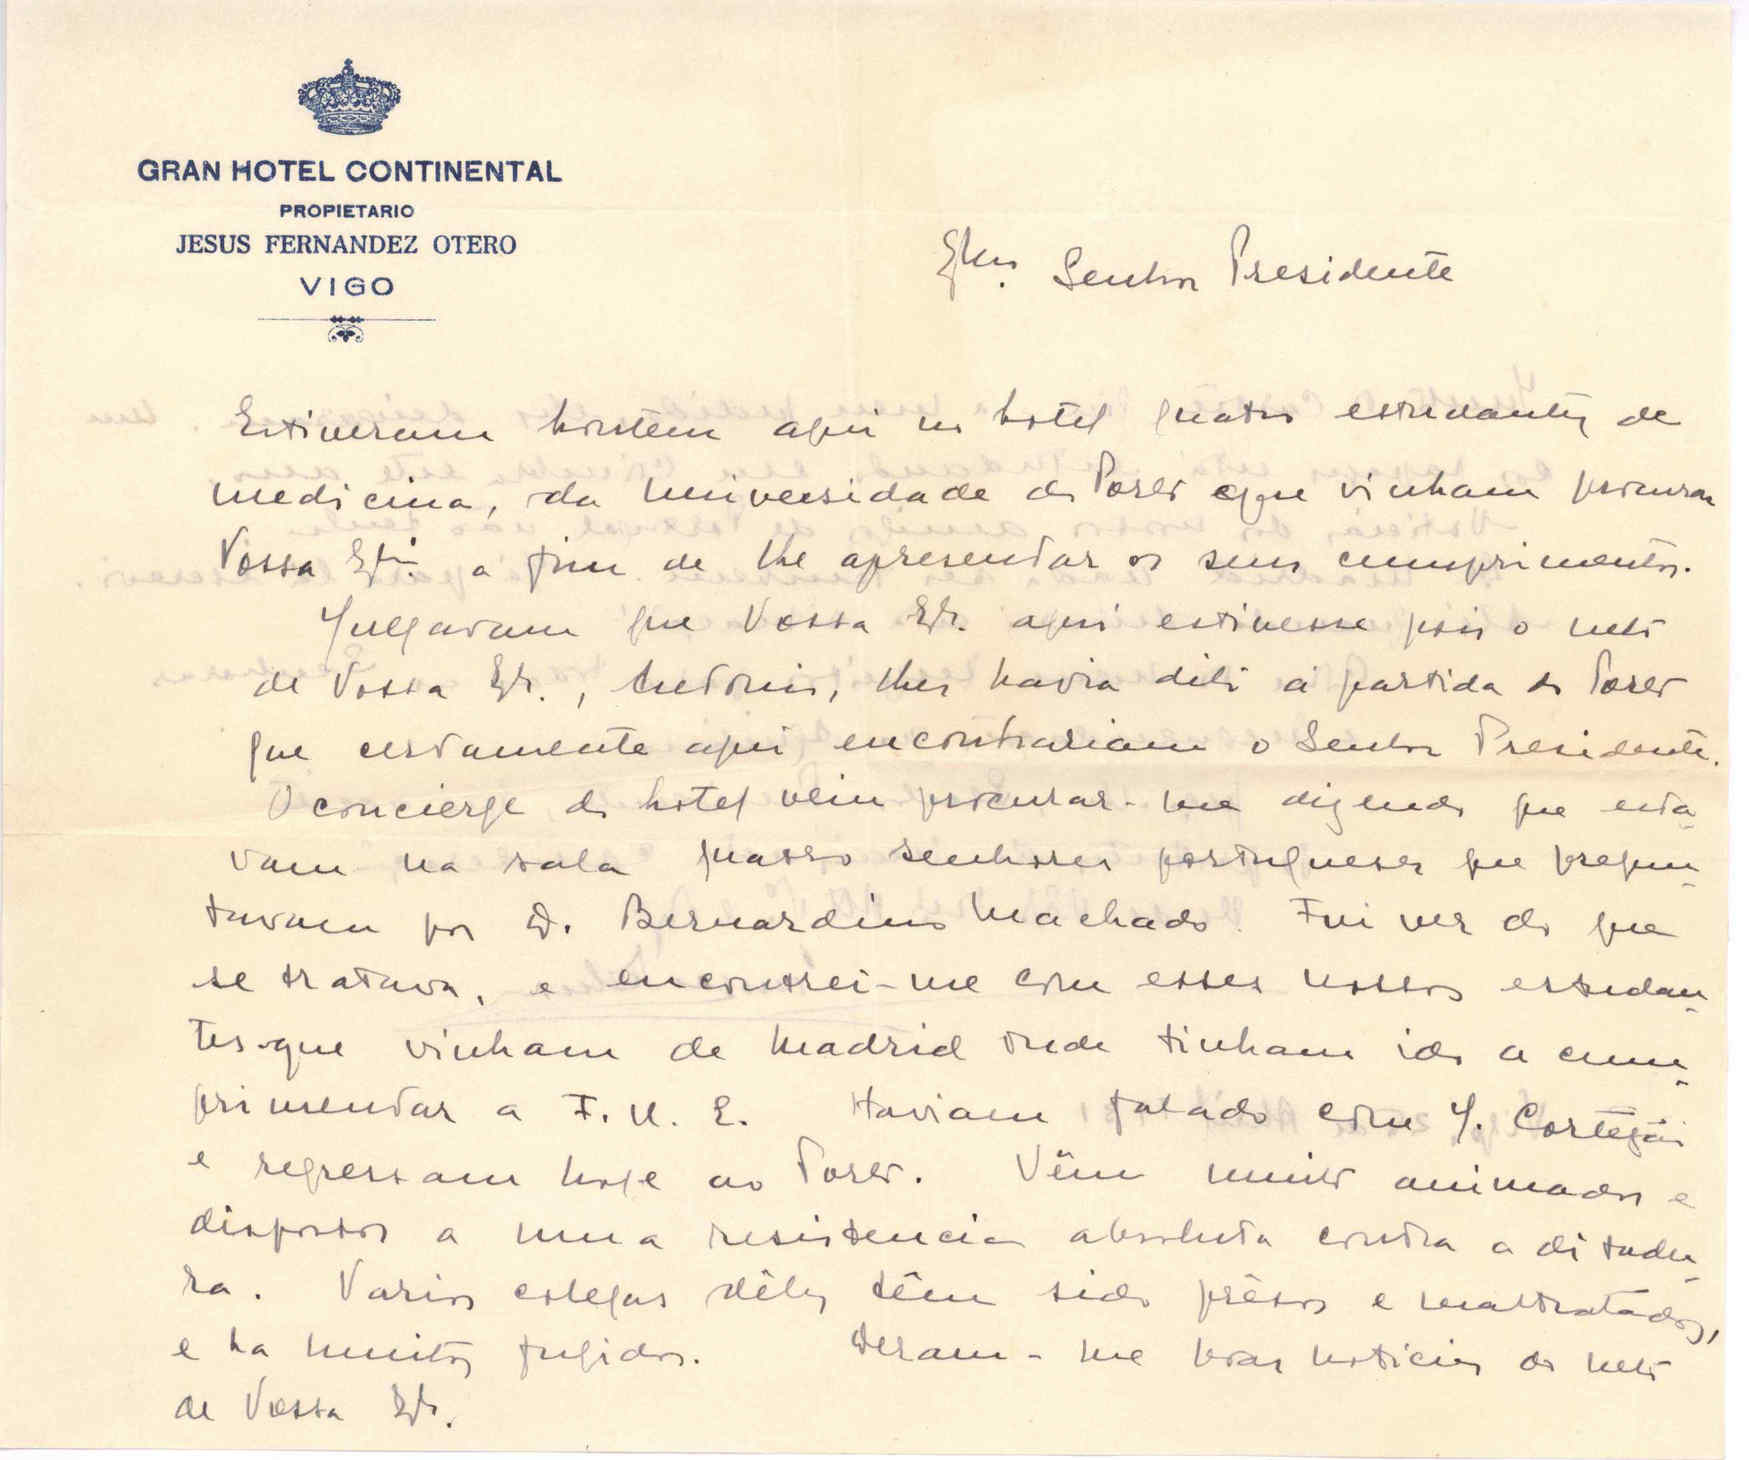 GRAN HOTEL CONTINENTAL
PROPIETARIO
JESUS FERNANDEZ OTERO
VIGO
Senhor Presidente
Estiveram hontem aqui no hotel quatro estudantes de
medicina, da Universidade do Porto que vinham procurar
Vossa Exª. a fim de lhe apresentar os seus cumprimentos.
Julgavam que Vossa Ex. aqui estivesse pois o neto
de Vossa Ex., Antonio, lhes havia dito á partida do Porto
que certamente aqui encontrariam o Senhor Presidente.
O concierge do hotel veiu procurar-me dizendo que esta-
vam na sala quatro senhores portugueses que pregun-
tavam por D. Bernardino Machado. Fui ver do que
se tratava, e encontrei-me com esses nossos estudan-
tes que vinham de Madrid onde tinham ido a cum-
primentar a F. U. E. Haviam falado com J. Cortezão
e regressam hoje ao Porto. Vêm muito animados e
dispostos a uma resistencia absoluta contra a ditadu-
ra. Varios colegas dêles têm sido prêsos e maltratados,
e ha muitos fugidos. Deram-me boas noticias do neto
de Vossa Ex.